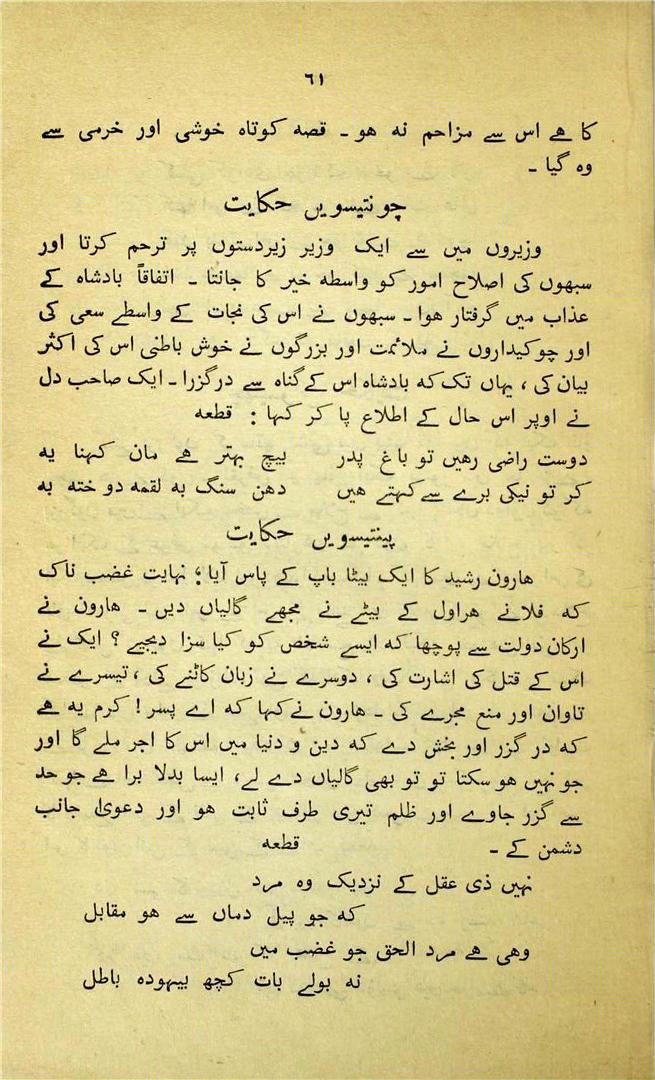 ٦١
کا ہے اس سے مزاحم نہ ہو ۔ قصہ کوتاہ خوشی اور خرمی سے
وہ گیا ۔
چونتیسویں حکایت
وزیروں میں سے ایک وزیر زیردستوں پر ترحم کرتا اور
سبھوں کی اصلاح امور کو واسطہ خیر کا جانتا ۔ اتفاقاً بادشاہ کے
عذاب میں گرفتار ہوا ۔ سبھوں نے اس کی نجات کے واسطے سعی کی
اور چوکیداروں نے ملائمت اور بزرگوں نے خوش باطنی اس کی اکثر
بیان کی ، یہاں تک کہ بادشاہ اس کے گناہ سے درگزرا ۔ ایک صاحب دل
نے اوپر اس حال کے اطلاع پا کر کہا : قطعہ
دوست راضی رھیں تو باغ پدر بیچ بہتر ھے مان کہنا یہ
کر تو نیکی برے سے کہتے ھیں دھن سنگ بہ لقمہ دوختہ بہ
پینتیسویں حکایت
ھارون رشید کا ایک بیٹا باپ کے پاس آیا ؛ نہایت غضب ناک
کہ فلانے ھراول کے بیٹے نے مجھے گالیاں دیں ۔ ھارون نے
ارکان دولت سے پوچھا کہ ایسے شخص کو کیا سزا دیجیے ؟ ایک نے
اس کے قتل کی اشارت کی ، دوسرے نے زبان کاٹنے کی ، تیسرے نے
تاوان اور منع مجرے کی ۔ ھارون نے کہا کہ اے پسر ! کرم یہ ھے
کہ در گزر اور بخش دے کہ دین و دنیا میں اس کا اجر ملے گا اور
جو نہیں ھو سکتا تو تو بھی گالیاں دے لے، ایسا بدلا برا ھے جو حد
سے گزر جاوے اور ظلم تیری طرف ثابت ھو اور دعویٰ جانب
دشمن کے ۔ قطعہ
نہیں ذی عقل کے نزدیک وہ مرد
کہ جو پیل دماں سے ھو مقابل
وھی ھے مرد الحق جو غضب میں
نہ بولے بات کچھ بیہودہ باطل